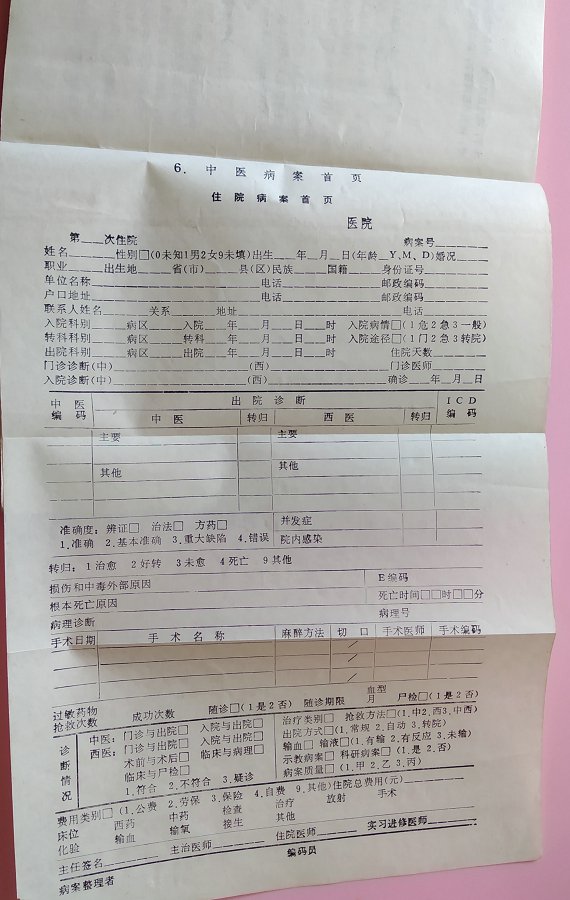 6. 中医病案首页
住院病案首页
医院
第___次住院 病案号______
姓名______性别□(0未知1男2女9未填)出生___年__月__日(年龄 Y、M、D)婚况____
职业____出生地____省(市)____县(区)民族____国籍____身份证号______
单位名称______电话______邮政编码______
户口地址______电话______邮政编码______
联系人姓名____关系____地址______电话______
入院科别____病区____入院___年___月___日___时 入院病情□(1危2急3一般)
转科科别____病区____转科___年___月___日___时 入院途径□(1门2急3转院)
出院科别____病区____出院___年___月___日___时 住院天数______
门诊诊断(中)______(西)______门诊医师______
入院诊断(中)______(西)______确诊___年__月__日
中医编码 出院诊断 ICD编码
中医 转归 西医 转归
主要 主要
其他 其他
准确度：辨证□ 治法□ 方药□ 并发症
1.准确 2.基本准确 3.重大缺陷 4.错误 院内感染
转归：1治愈 2好转 3未愈 4死亡 9其他
损伤和中毒外部原因 E编码
根本死亡原因 死亡时间□□时□□分
病理诊断 病理号
手术日期 手术名称 麻醉方法 切口 手术医师 手术编码
/
/
/
过敏药物 血型
抢救次数 成功次数 随诊□(1是2否) 随诊期限 月 尸检□(1是2否)
诊断情况
中医：门诊与出院□ 入院与出院□ 治疗类别□ 抢救方法□(1.中2.西3.中西)
西医：门诊与出院□ 入院与出院□ 出院方式□(1.常规2.自动3.转院)
术前与术后□ 临床与病理□ 输血□ 输液□(1.有输2.有反应3.未输)
临床与尸检□ 示教病案□ 科研病案□(1.是2.否)
1.符合 2.不符合 3.疑诊 病案质量□(1.甲2.乙3.丙)
费用类别□(1.公费 2.劳保 3.保险 4.自费 9.其他)住院总费用(元)______
床位 西药 中药 检查 治疗 放射 手术
化验 输血 输氧 接生 其他
主任签名______主治医师______住院医师______实习进修医师______
病案整理者 编码员